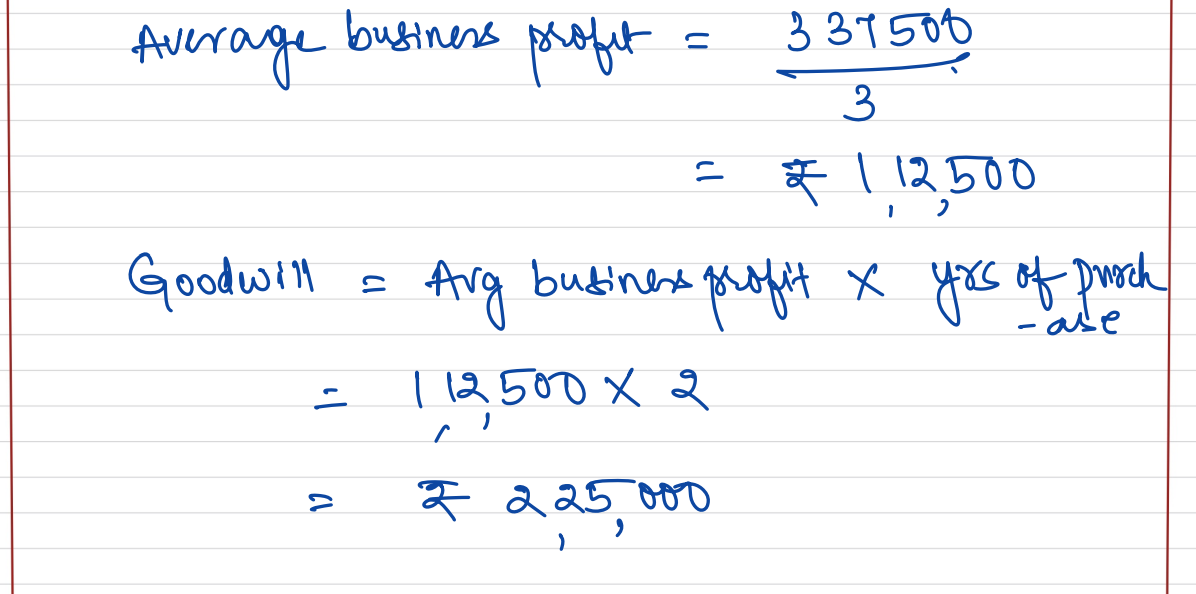 Average business profit = 337500
3
= ₹ 1,12,500
Goodwill = Avg business profit × yrs of purch
-ase
= 1,12,500 × 2
= ₹ 2,25,000